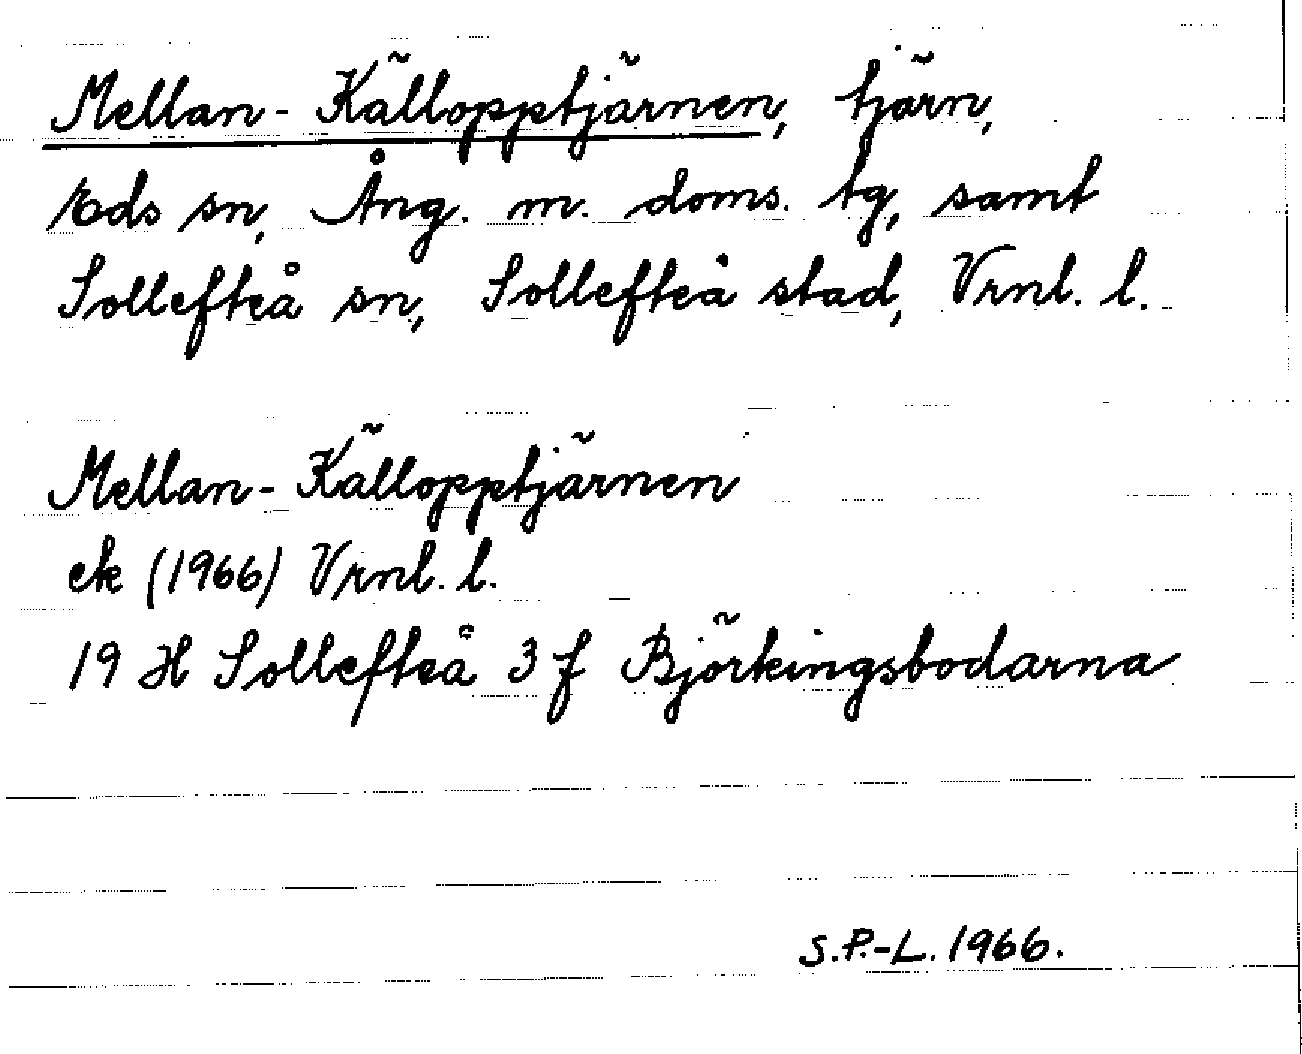 Mellan-Källopptjärnen, tjärn,
Eds sn, Ång. m. doms. tg, samt
Sollefteå sn, Sollefteå stad, Vrnl. l.
Mellan-Källopptjärnen
ek (1966) Vrnl. l.
19 H Sollefteå 3 f Björkingsbodarna
S.P.-L. 1966.